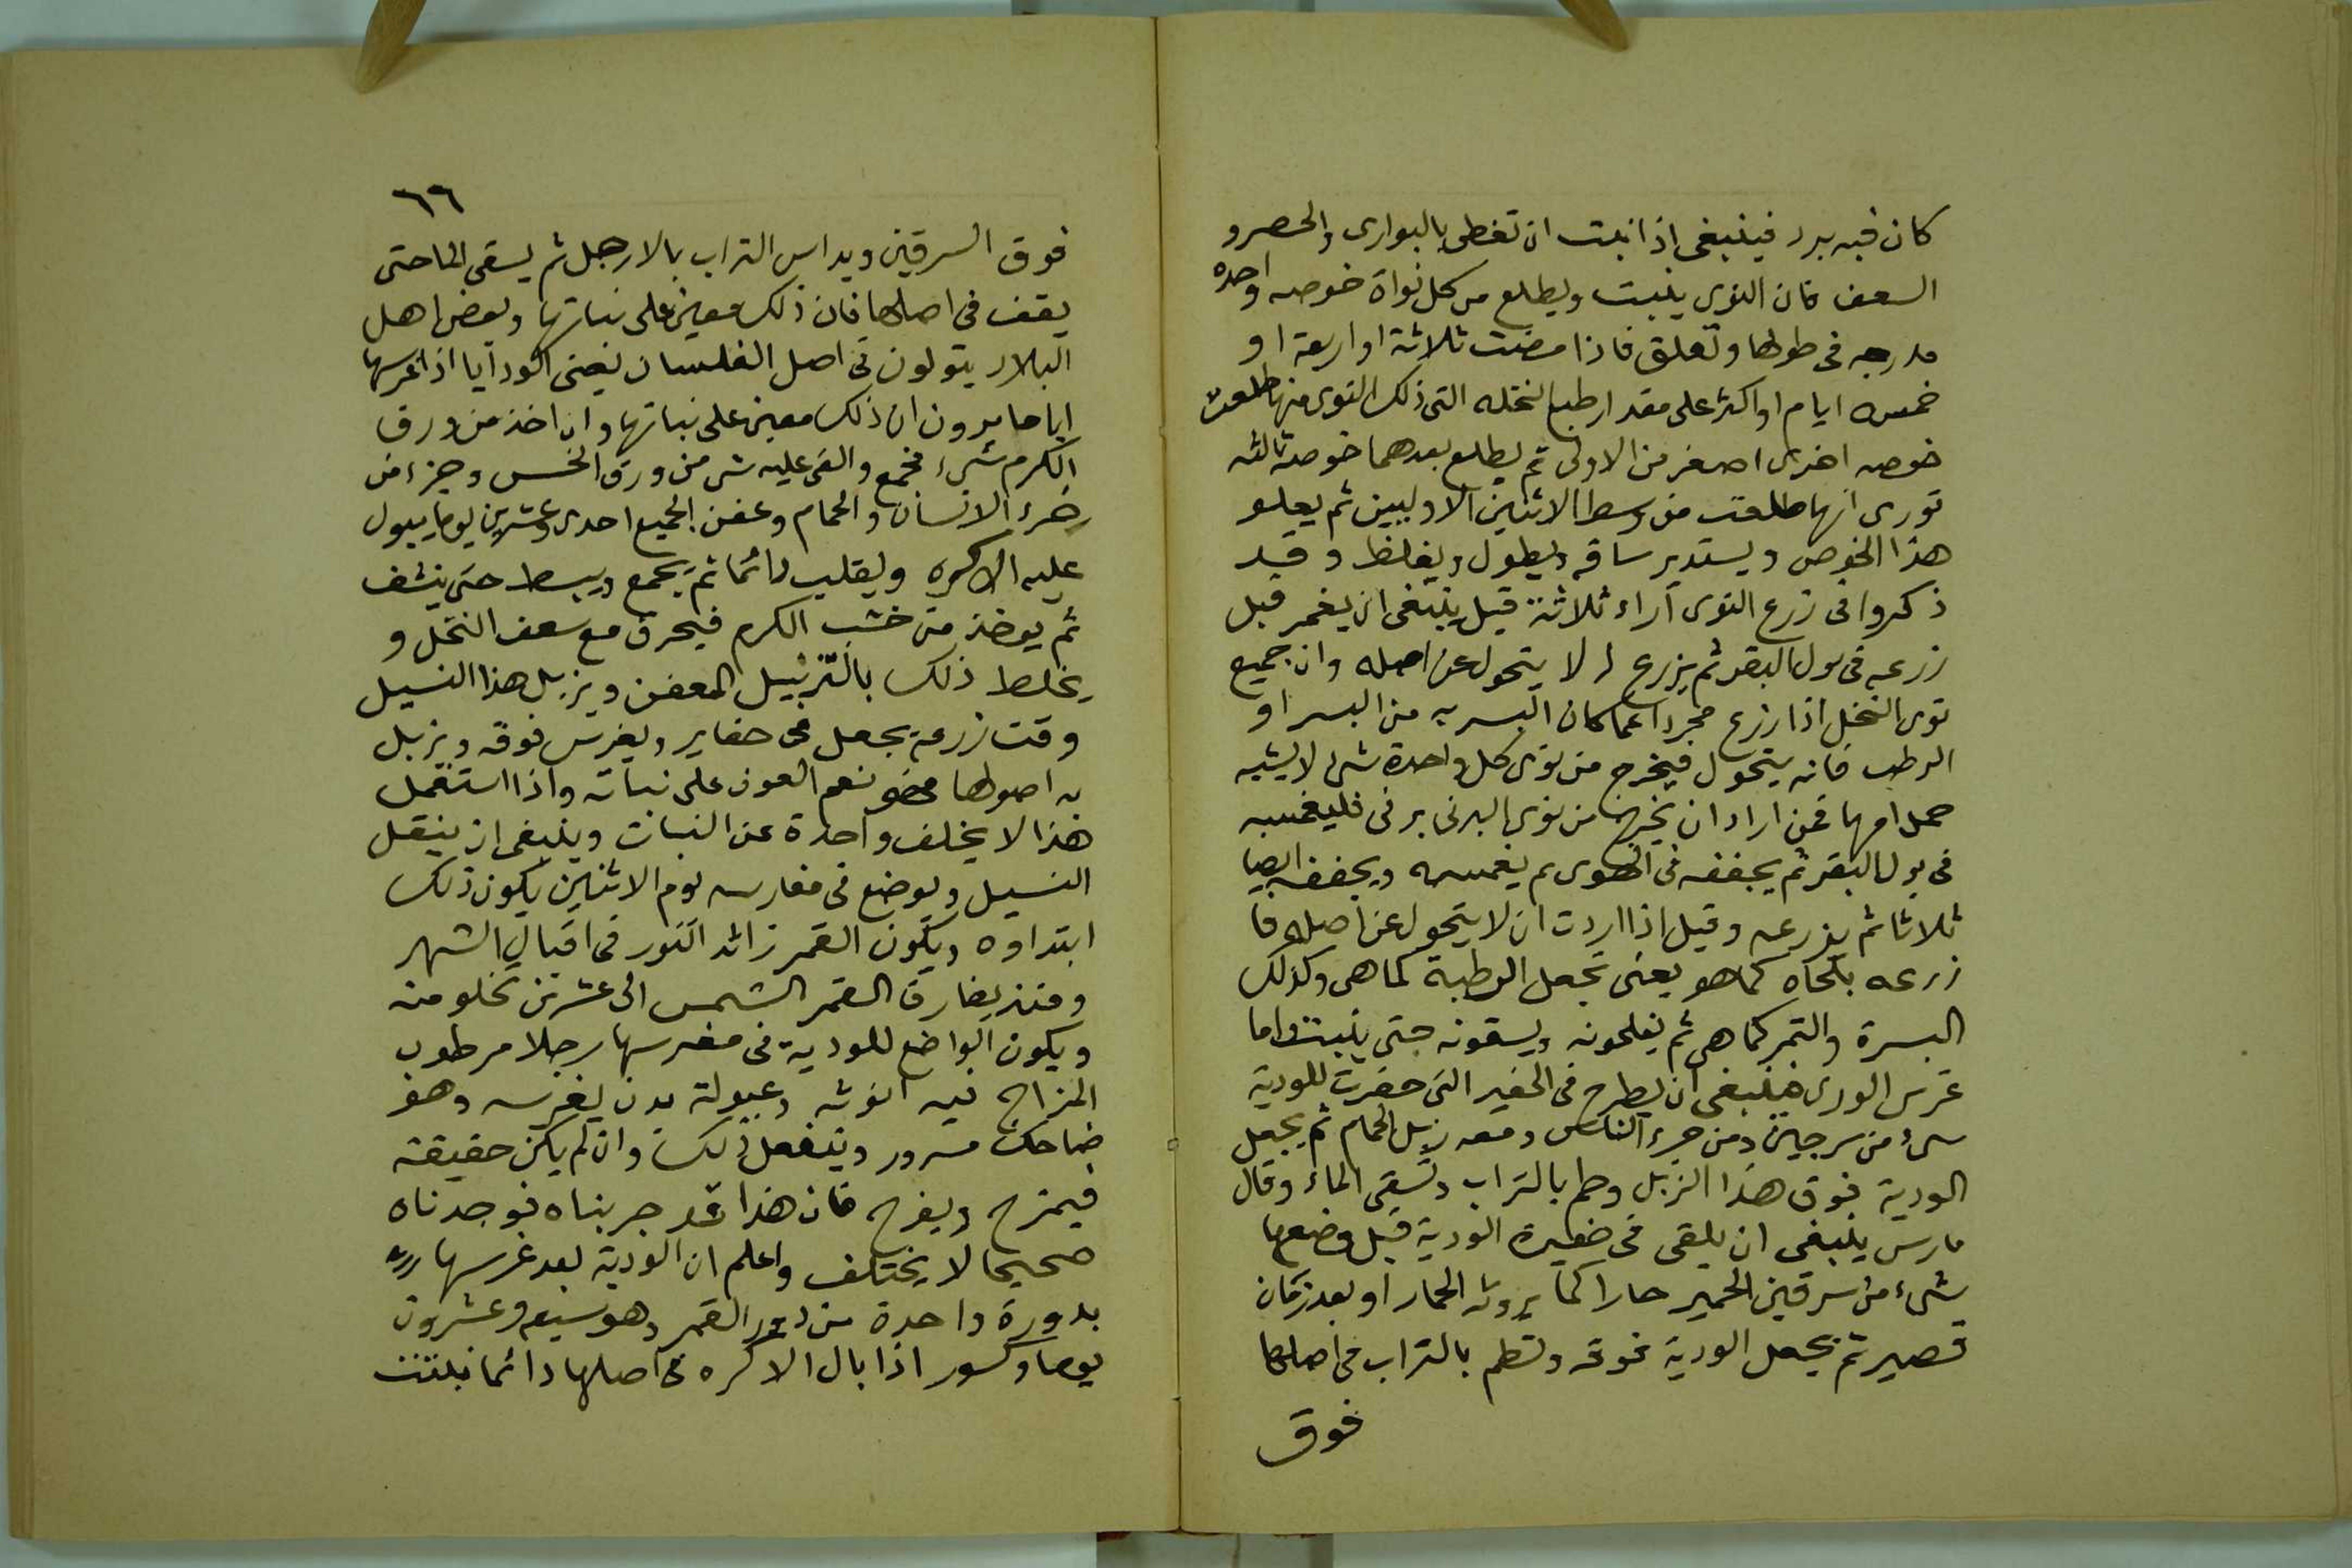 كان فيه برد فينبغى اذا نبت ان تغطى بالبوارى والحصر و
السعف فان النوى ينبت ويطلع من كل نواة خوصه واحده
مدرجه فى طولها وتعلق فاذا مضت ثلاثة او اربعة او
خمسه ايام او اكثر على مقدار طبع النخله التى ذلك النوى منها طلعت
خوصه اخرى اصغر من الاولى ثم يطلع بعدهما خوصه ثالثه
تورى انها طلعت من وسط الاثنين الاوليين ثم يعلو
هذا الخوص ويستدير ساقه ويطول ويغلظ وقد
ذكروا فى زرع النوى آراء ثلاثة قيل ينبغى ان يغمر قبل
زرعه فى بول البقر ثم يزرع لا يتحول عن اصله وان جميع
نوى النخل اذا زرع مجردا عما كان البسر به من البسر او
الرطب فانه يتحول فيخرج من نوى كل واحدة شى لا يشبه
حمل امها فمن اراد ان يخرج من نوى البرنى برنى فليغمسه
فى بول البقر ثم يجففه فى الهوى ثم يغمسه ويجففه ايضا
ثلاثا ثم يزرعه وقيل اذا اردت ان لا يتحول عن اصله فا
زرعه بلحاه كما هو يعنى تجعل الرطبة كما هى وكذلك
البسرة والتمر كما هى ثم يفلحونه ويسقونه حتى ينبت واما
غرس الودى فينبغى ان يطرح فى الحفير التى حفرت للودية
شىء من سرجين ومن خرء الناس ومعه زبل الحمام ثم يجعل
الودية فوق هذا الزبل وطم بالتراب وتسقى الماء وقال
مارس ينبغى ان يلقى فى حفيرة الودية قبل وضعها
شىء من سرقين الحمير حارا كما يروثه الحمار او بعد زمان
قصير ثم يجعل الودية فوقه وتطم بالتراب فى اصلها
فوق
٦٦
فوق السرقين ويداس التراب بالارجل ثم يسقى الما حتى
يقف فى اصلها فان ذلك معين على نباتها وبعض اهل
البلاد يتولون فى اصل الفلسان يعنى الودايا اذا غرسها
اياما يرون ان ذلك معين على نباتها وان اخذ من ورق
الكرم شىء فجمع والقى عليه شى من ورق الخس وجزء من
خرء الانسان والحمام وعفن الجميع احدى وعشرين يوما يبول
عليه الاكره ويقلب دائما ثم يجمع ويبسط حتى ينشف
ثم يوخذ من خشب الكرم فيحرق مع سعف النخل و
يخلط ذلك بالتزبيل المعفن ويزبل هذا الفسيل
وقت زرعه يجعل فى حفاير ويغرس فوقه ويزبل
به اصولها فهو نعم العون على نباته واذا استعمل
هذا لا يخلف واحدة عن النبات وينبغى ان ينقل
الفسيل ويوضع فى مغارسه يوم الاثنين يكون ذلك
ابتداوه ويكون القمر زائد النور فى اقبال الشهر
ومنذ يفارق القمر الشمس الى عشرين تخلو منه
ويكون الواضع للودية فى مغرسها رجلا مرطوب
المزاج فيه انوثه وعبولة بدن يغرسه وهو
ضاحك مسرور ويتفعل ذلك وان لم يكن حقيقه
فيمزح ويفرح فان هذا قد جربناه فوجدناه
صحيحا لا يختلف واعلم ان الودية بعد غرسها
بدورة واحدة من دور القمر وهو سبعه وعشرون
يوما وكسور اذا بال الاكره فى اصلها دائما نبتت